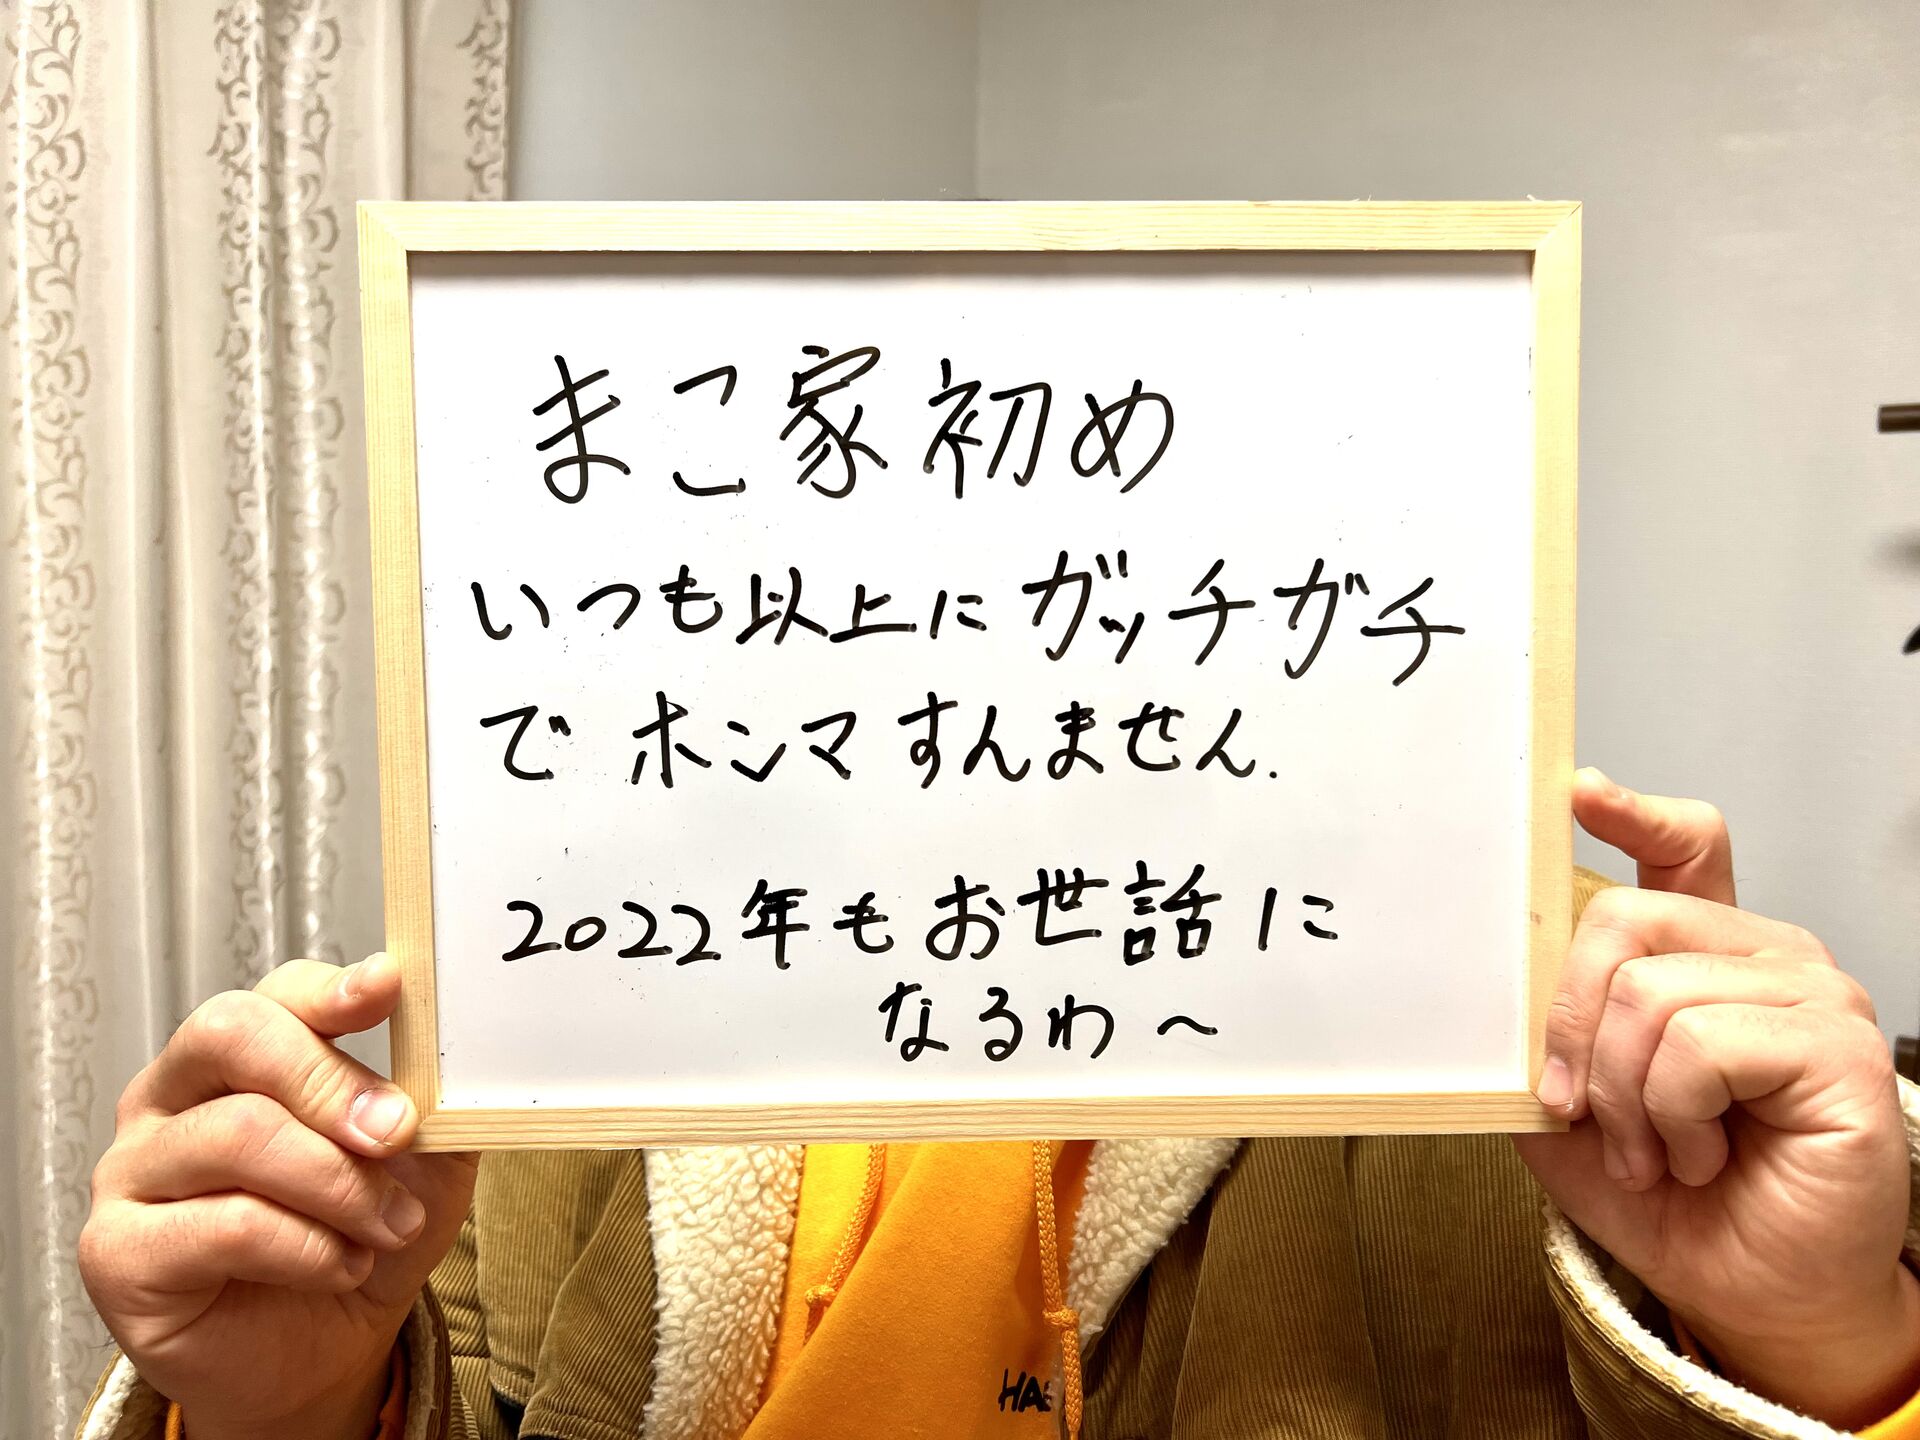 まこ家初め
いつも以上にガッチガチ
でホンマすんません.
2022年もお世話に
なるわ〜
HA